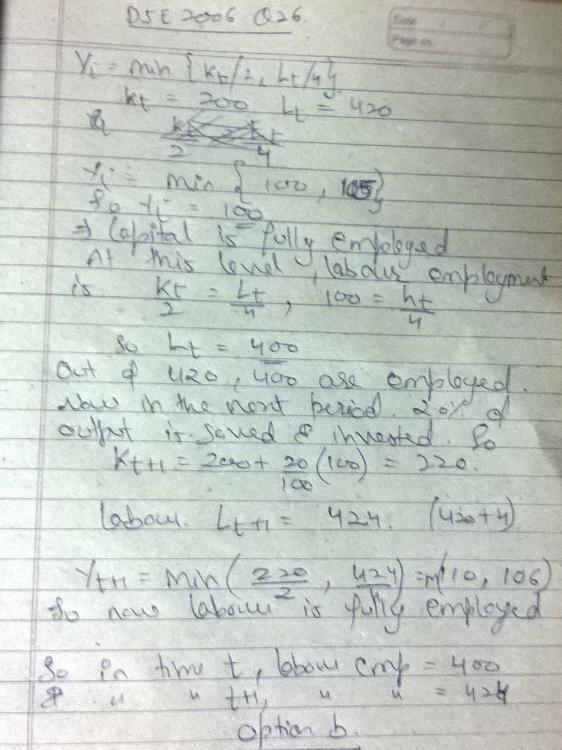 DSE 2006 Q26.
Date
Page no.
Yi = min {Kt/2, Lt/4}
Kt = 200 Lt = 420
Kt/2 Lt/4
Yi = min {100, 105}
So Yi = 100
⇒ Capital is fully employed
At this level, labour employment
is Kt/2 = Lt/4, 100 = Lt/4
So Lt = 400
Out of 420, 400 are employed.
Now in the next period. 20% of
output is saved & invested. So
Kt+1 = 200 + 20/100 (100) = 220.
Labour. Lt+1 = 424. (420+4)
Yt+1 = min (220/2, 424/4) = m(110, 106)
So now labour is fully employed
So in time t, labour emp = 400
& " " t+1, " " = 424
Option b.